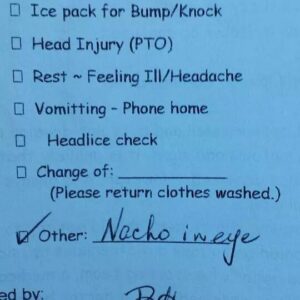 Ice pack for Bump/Knock
Head Injury (PTO)
Rest ~ Feeling Ill/Headache
Vomitting - Phone home
Headlice check
Change of:
(Please return clothes washed.)
Other: Nacho in eye
ed by: